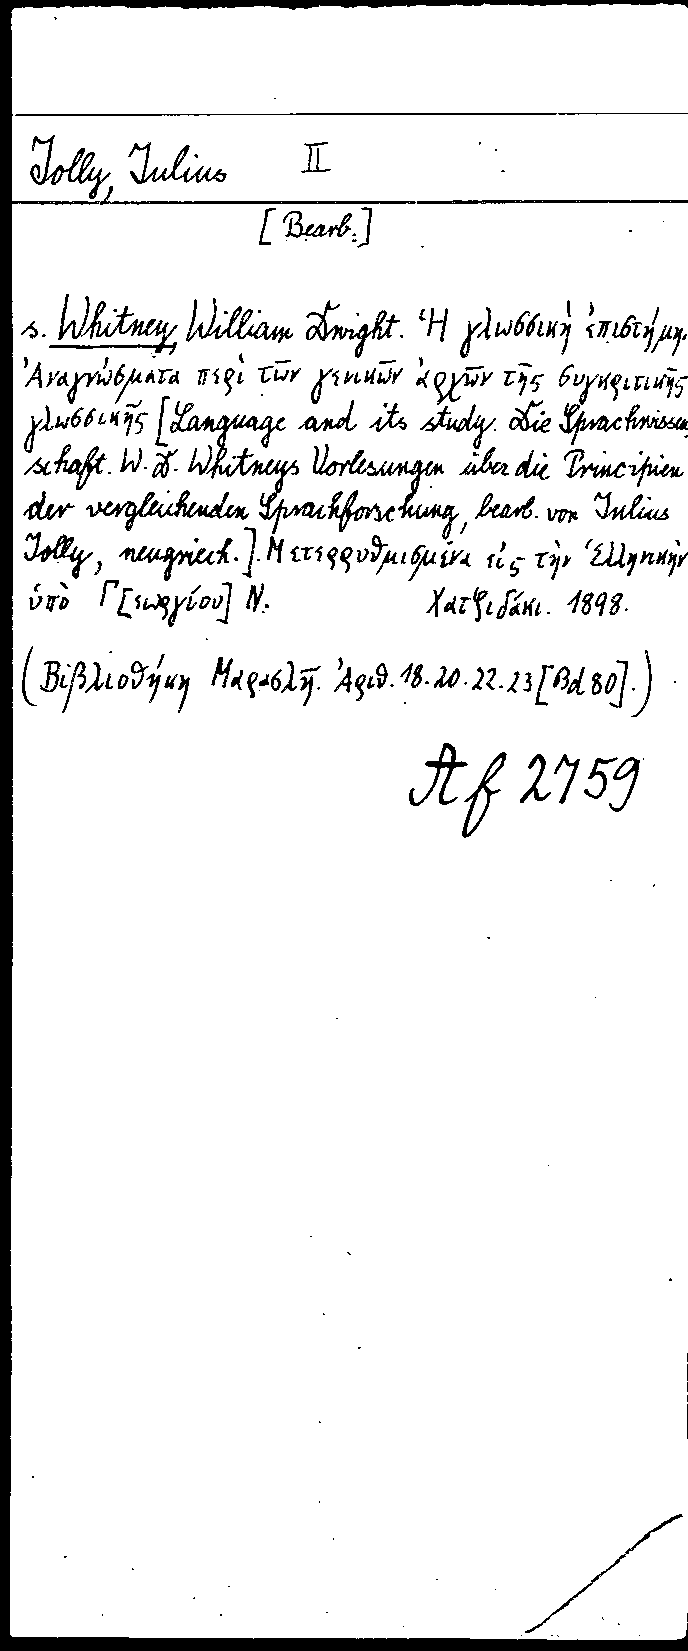 Jolly, Julius II
[Bearb.]
s. Whitney, William Dwight. Ἡ γλωσσικὴ ἐπιστήμη.
Ἀναγνώσματα περὶ τῶν γενικῶν ἀρχῶν τῆς συγκριτικῆς
γλωσσικῆς [Language and its study. Die Sprachwissen
schaft. W. D. Whitneys Vorlesungen über die Principien
der vergleichenden Sprachforschung, bearb. von Julius
Jolly, neugriech.]. Μεταρρυθμισμένα εἰς τὴν Ἑλληνικὴν
ὑπὸ Γ[εωργίου] Ν. Χατζιδάκι. 1898.
(Βιβλιοθήκη Μαρασλῆ. Ἀριθ. 18. 20. 22. 23 [Bd 80].)
Af 2759